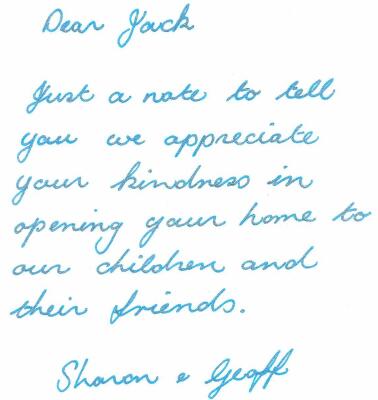 Dear Jack
Just a note to tell
you we appreciate
your kindness in
opening your home to
our children and
their friends.
Sharon & Geoff